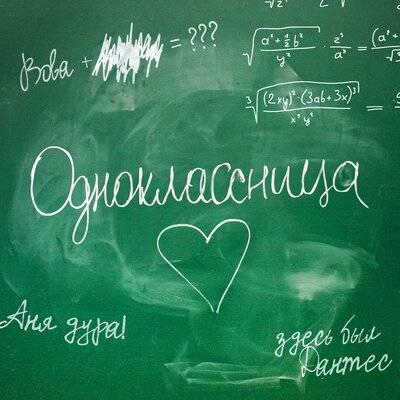 Вова + = ???
√a²+½b² / y² · z³ / a³ = (a²+
∛(2xy)²·(3ab+3x)³ / x³y² =
Одноклассница
Аня дура!
здесь был
Дантес